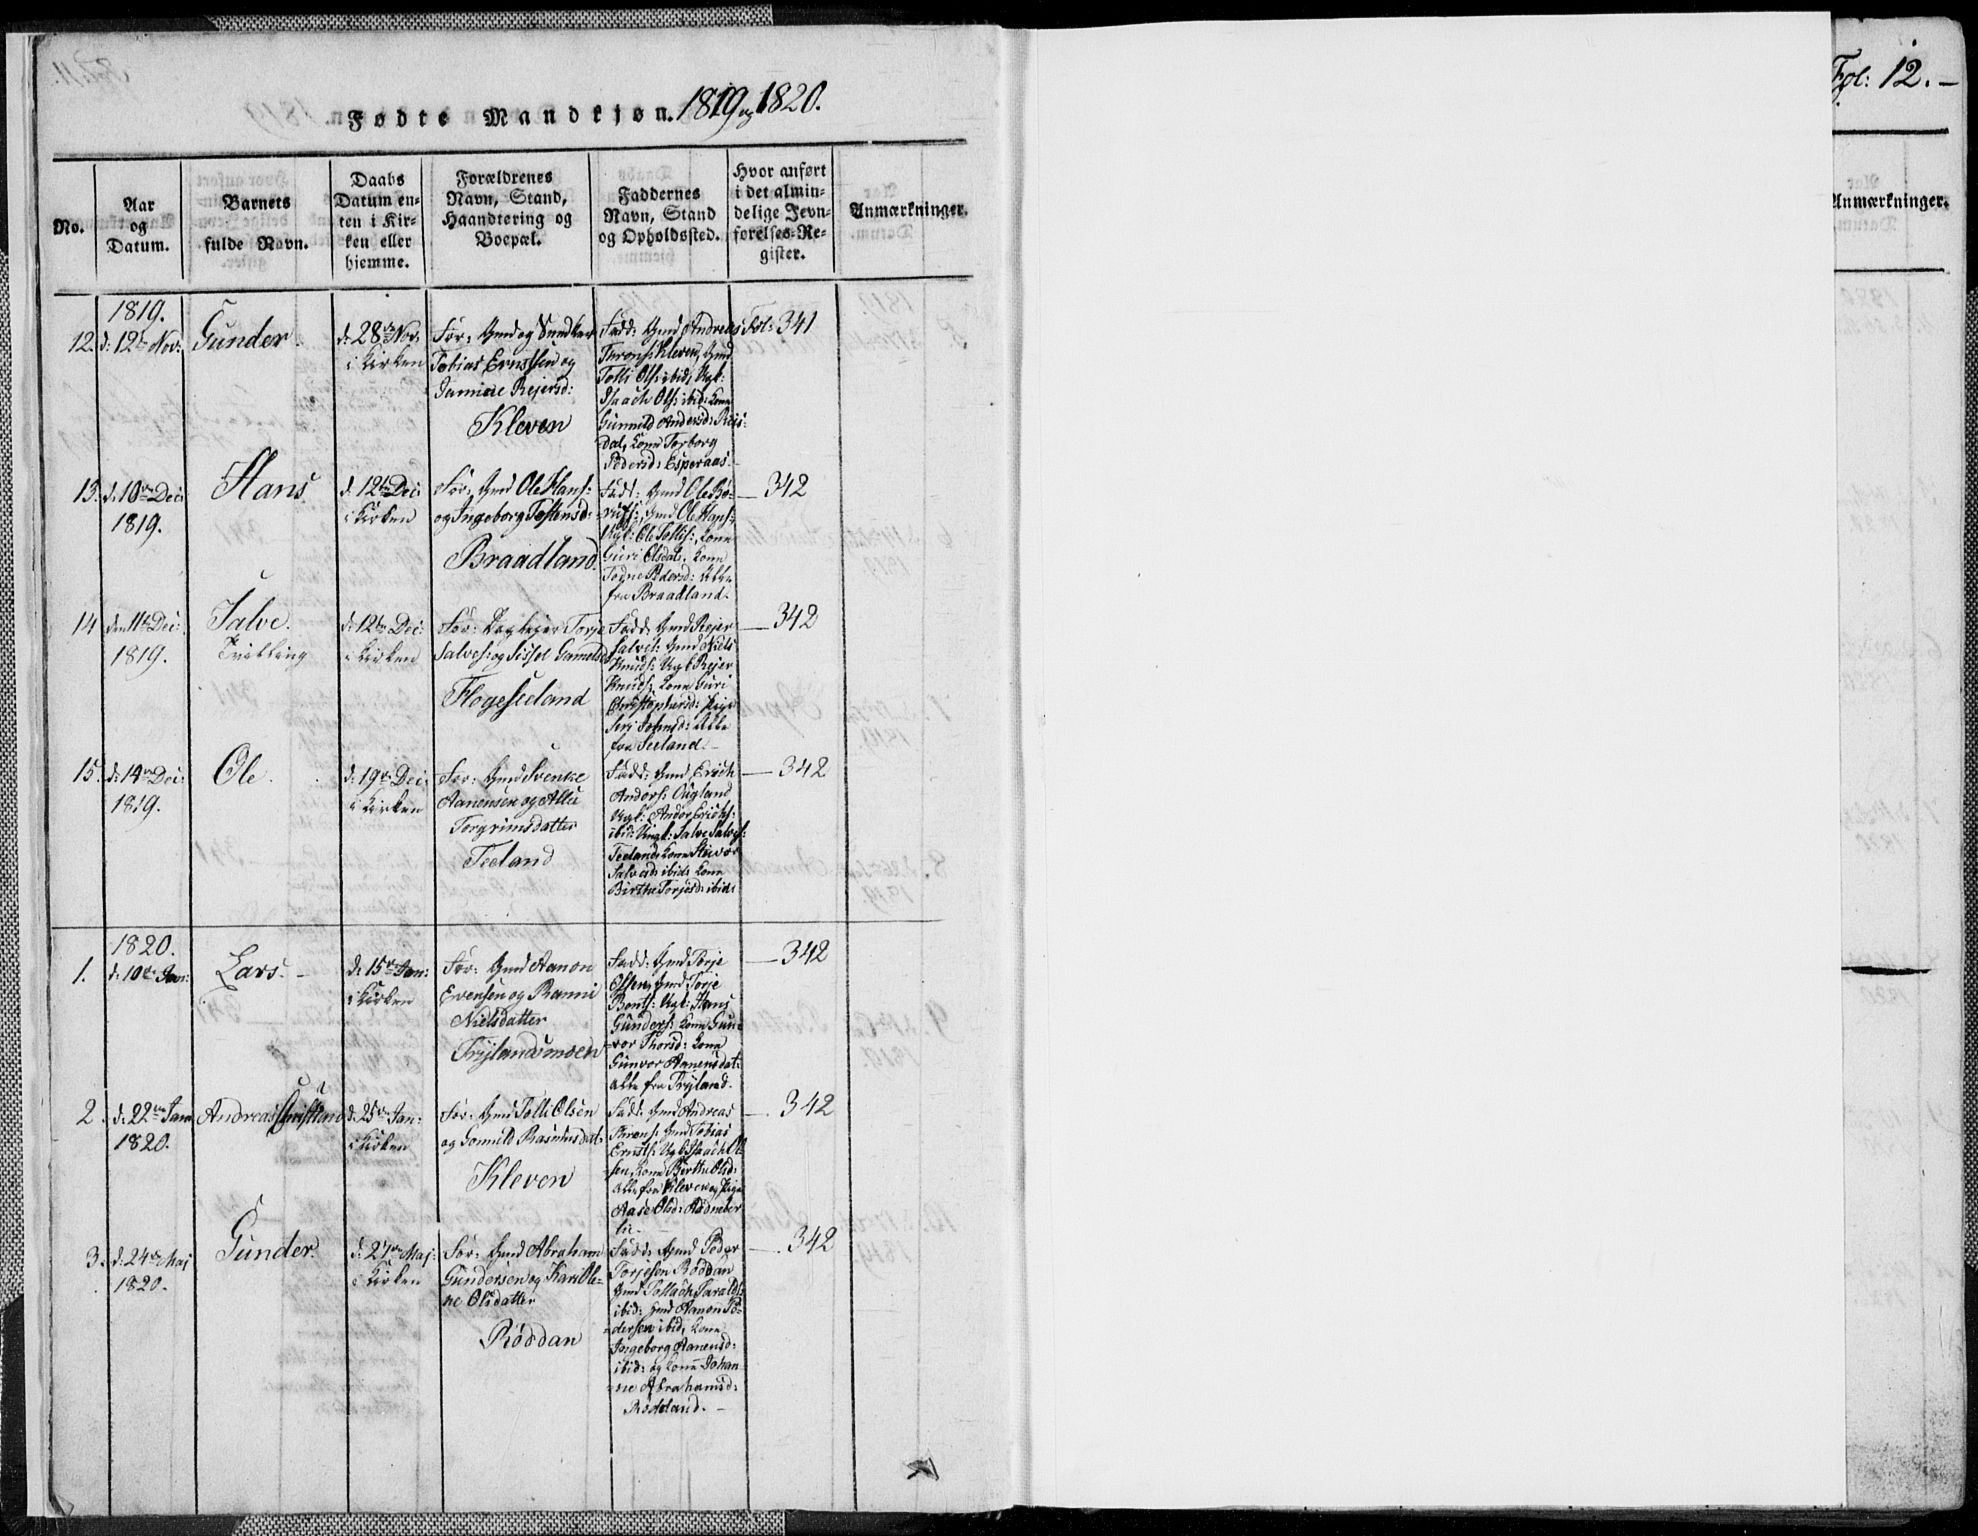 Fødte Mandkjøn. 1819 og 1820.
No.
Aar
og
Datum.
Barnets
fulde Navn.
Daabs
Datum en-
ten i Kir-
ken eller
hjemme.
Forældrenes
Navn, Stand,
Haandtering og
Boepæl.
Faddernes
Navn, Stand
og Opholdssted.
Hvor anført
i det almin-
delige Jevn-
førelses-Re-
gister.
Anmærkninger.
1819.
12. d: 12te Nov:
Gunder
d: 28de Nov:
i Kirken
For: Gmd og
Tobias Ernstsen og
Rejersd:
Kleven
Fadd: Gmd Andreas
Throns: Kleven, Gmd
Tolli Ols: ibid, Ugk:
Isaach Ols: ibid: Kone
Gunnild Andersd: Reis-
dal, Kone Torborg
Pedersd: Esperaas.
Fol: 341
13. d: 10de Dec:
1819.
Hans.
d: 12te Dec:
i Kirken
For: Gmd Ole Hans:
og Ingeborg Tostensd:
Braadland.
Fadd: Gmd Ole Bø-
Gmd Ole Hans:
Ugk: Ole Tollis:, Kone
Guri Olsdat: Kone
Pedersd: Alle
fra Braadland.
— 342
14 den 11te Dec:
1819.
Salve.
Tvilling
d: 12te Dec:
i Kirken
For: Torje
Salves: og Sissel Gamelsd:
Flogeseeland
Fadd: Gmd Rejer
Salves: Gmd Niels
Knuds: Ugk Rejer
Knuds: Kone Guri
Christophersd: Pige
Siri Alle
fra Seeland. —
— 342
15. d: 14de Dec:
1819.
Ole.
d: 19de Dec:
i Kirken
For: Gmd Svenke
Aanensen og
Torgrimsdatter
Teeland
Fadd: Gmd Erich
Anders: Ougland
Ugk: Andor Erichs:
ibid: Ungk: Salve Salves:
Teeland: Kone
Salvesd: ibid: Kone
Birthe Torjesd: ibid:
— 342
1820.
1. d: 10de Jan:
Lars. —
d: 15de Jan:
i Kirken
For: Gmd Aanon
Evensen og Ranni
Nielsdatter
Trylandsmoen
Fadd: Gmd Torje
Olsen, Gmd Torje
Bents: Ugk: Hans
Gunders: Kone Gun-
vor Thorsd: Kone
Gunvor Aanensdat:
alle fra Tryland.
— 342
2. d: 22de Jan:
1820.
Andreas
d: 25de Jan:
i Kirken
For: Gmd Tolli Olsen
og Gonnild Rasmusdat:
Kleven
Fadd: Gmd Andreas
Throns: Gmd Tobias
Ernsts: Ugk Isaach Ol-
sen, Kone Birthe Olsd:
alle fra Kleven og Pige
Aase Olsd:
lie —
— 342
3. d: 24de Maj
1820.
Gunder.
d: 27de Maj:
i Kirken
For: Gmd Abraham
Gundersen og Kari Ole-
ne Olsdatter
Røddan
Fadd: Gmd Peder
Torjesen Røddan
Gmd Tollach Taralds:
ibid: Gmd Aanon Pe-
dersen ibid, Kone
Ingeborg Aanensd:
ibid: og Kone Johan-
ne Abrahamsd:
Rødeland. —
— 342
Fol: 12. —
Anmærkninger.